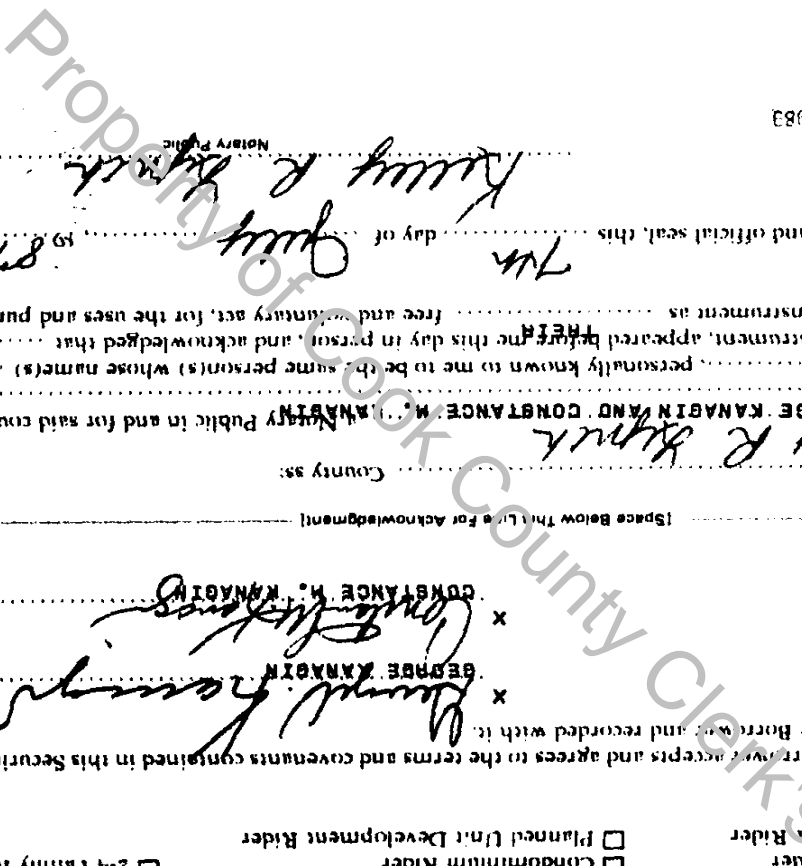 der ☐ Condominium Rider ☐ 2-4 Family
Rider ☐ Planned Unit Development Rider
rrower accepts and agrees to the terms and covenants contained in this Securi
Borrower and recorded with it.
X George Kanagin
GEORGE KANAGIN
X Constance M Kanagin
CONSTANCE M. KANAGIN
[Space Below This Line For Acknowledgment]
County ss:
R Lynch
a Notary Public in and for said cou
GE KANAGIN AND CONSTANCE M. KANAGIN
, personally known to me to be the same person(s) whose name(s)
strument, appeared before me this day in person, and acknowledged that
THEIR
nstrument as free and voluntary act, for the uses and pur
and official seal, this 7th day of July , 19 8
Kelley R Lynch
Notary Public
983
Property of Cook County Clerk's